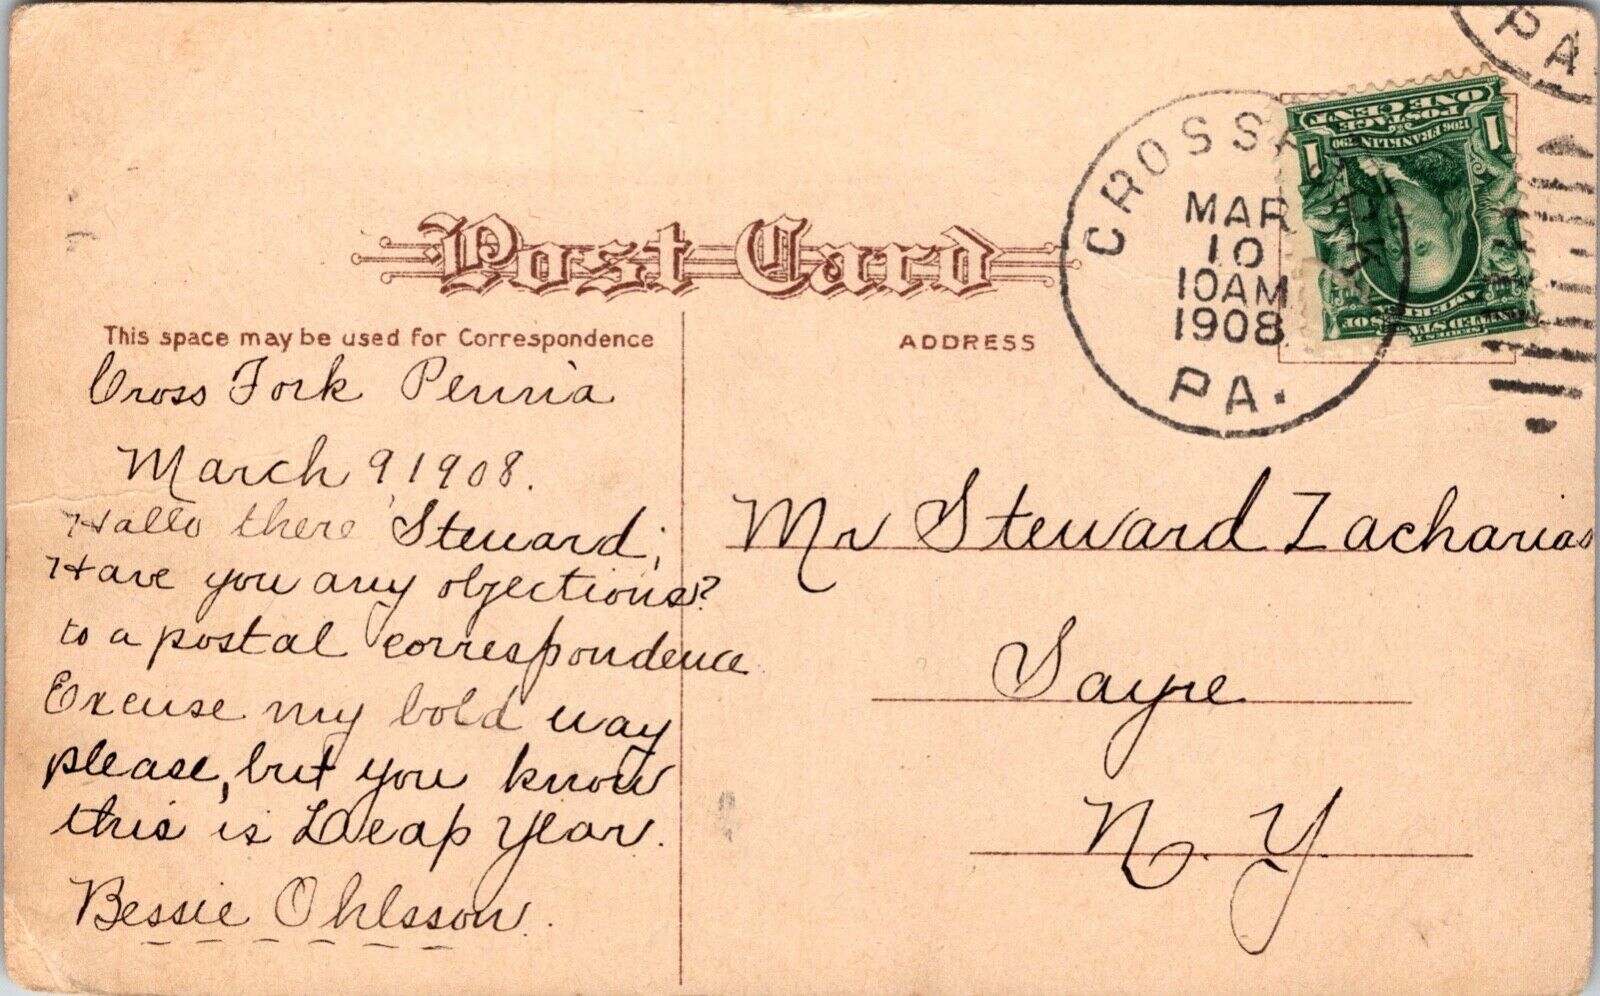 Post Card
This space may be used for Correspondence
ADDRESS
CROSS FORK
MAR
10
10AM
1908
PA.
PA.
1 1
POSTAGE
ONE CENT
1706 FRANKLIN 1790
Cross Fork Penna
March 9 1908.
Hallo there Steward;
Have you any objections?
to a postal correspondence
Excuse my bold way
please, but you know
this is Leap Year.
Bessie Ohlsson.
Mr Steward Zacharias
Sayre
N. Y.